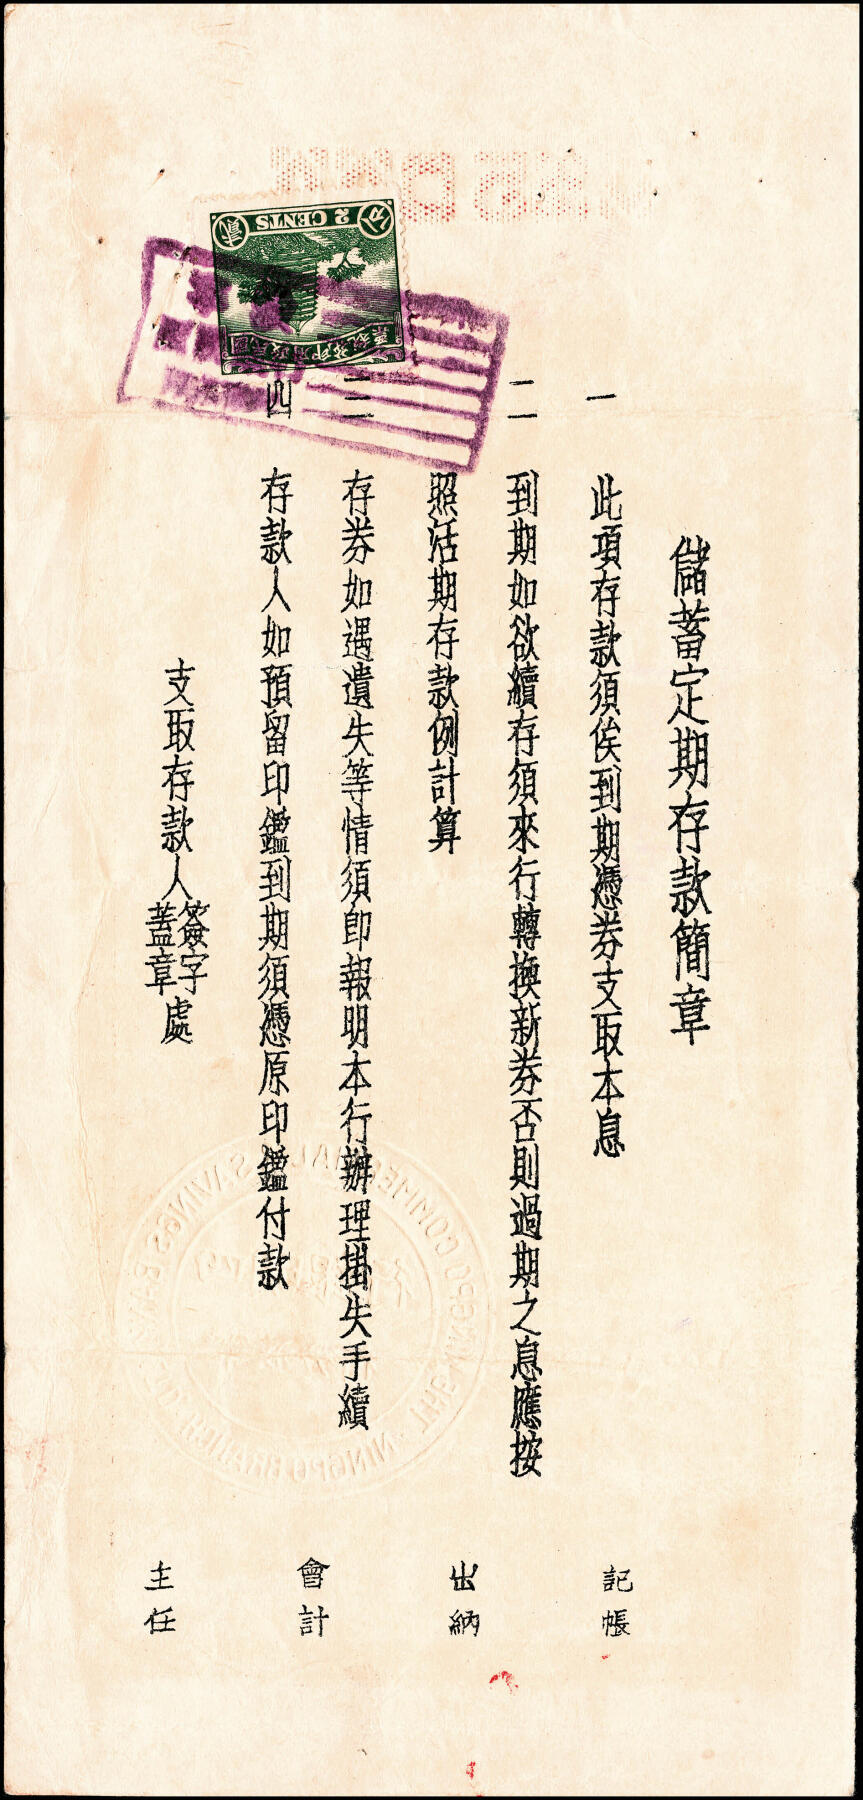 儲蓄定期存款簡章
一 此項存款須俟到期憑券支取本息
二 到期如欲續存須來行轉換新券否則過期之息應按
照活期存款例計算
三 存券如遇遺失等情須即報明本行辦理掛失手續
四 存款人如預留印鑑到期須憑原印鑑付款
支取存款人簽字蓋章處
記帳
出納
會計
主任
2 CENTS
貳
分
NINGPO COMMERCIAL & SAVINGS BANK
NINGPO BRANCH